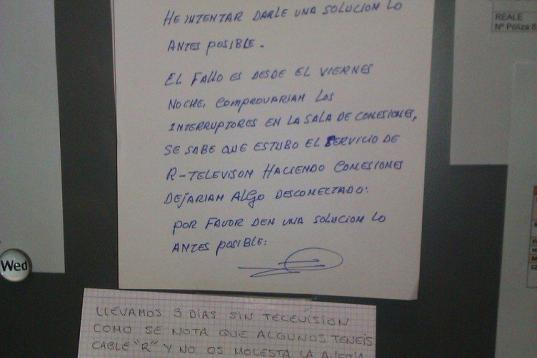 HE INTENTAR DARLE UNA SOLUCION LO
ANTES POSIBLE.
EL FALLO ES DESDE EL VIERNES
NOCHE. COMPROVARIAN LOS
INTERRUPTORES EN LA SALA DE CONESIONES,
SE SABE QUE ESTUBO EL SERVICIO DE
R-TELEVISON HACIENDO CONESIONES
DEJARIAN ALGO DESCONECTADO.
POR FAVOR DEN UNA SOLUCION LO
ANTES POSIBLE.
LLEVAMOS 3 DIAS SIN TELEVISION
COMO SE NOTA QUE ALGUNOS TENEIS
CABLE "R" Y NO OS MOLESTA LA
REALE
Nº Póliza
Wed